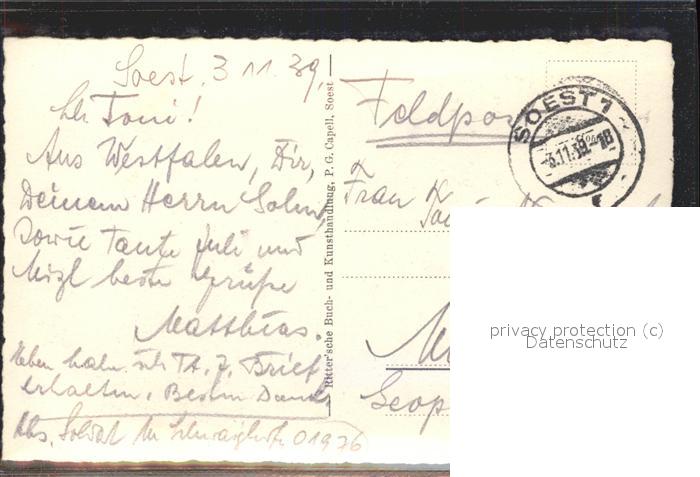 Soest, 3.11.39.
Lb. Toni!
Aus Westfalen, Dir,
Deinem Herrn Sohn,
sowie Tante Juli und
Mizl beste Grüße
Matthias.
Neben habe ich Brief
erhalten. Besten Dank.
Abs. Soldat 01976
Ritter'sche Buch- und Kunsthandlung, P. G. Capell, Soest
Feldpost
SOEST 1
3.11.39.-18
Frau
privacy protection (c)
Datenschutz